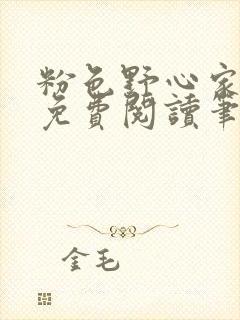 粉色野心家
免費閱讀筆
金毛